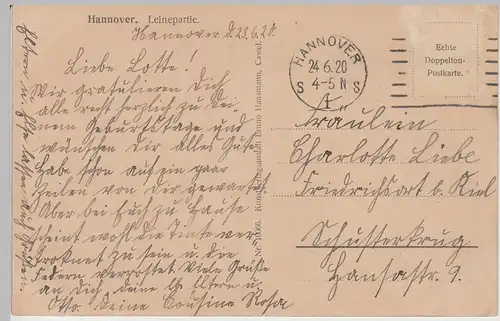 Hannover. Leinepartie.
Hannover d. 23.6.20.
Liebe Lotte!
Wir gratulieren Dich
alle recht herzlich zu Dei-
nem Geburtstage und
wünschen Dir alles Gute.
Habe schon auf ein paar
Zeilen von Dir gewartet.
Aber bei Euch zu Hause
scheint wohl die Tinte ver-
troknet zu sein u. die
Federn verrostet. Viele Grüße
an Dich, deine Eltern u.
Otto. Deine Cousine Rosa
Eltern u. lassen auch grüßen
Nr. 10006. Kunstverlagsanstalt Bruno Hansmann, Cassel.
HANNOVER
24.6.20
4-5 N
S S
1
Echte
Doppelton-
Postkarte.
Fräulein
Charlotte Liebe
Friedrichsort b. Kiel
Schusterkrug
Hansastr. 9.